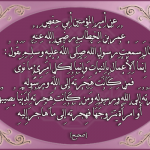 عن أمير المؤمنين أبي حفص
عمر بن الخطاب رضي الله عنه
قال سمعت رسول الله صلى الله عليه وسلم يقول :
إنما الأعمال بالنيات وإنما لكل امرئ ما نوى
فمن كانت هجرته إلى الله ورسوله
فهجرته إلى الله ورسوله ومن كانت هجرته لدنيا يصيبها
أو امرأة ينكحها فهجرته إلى ما هاجر إليه